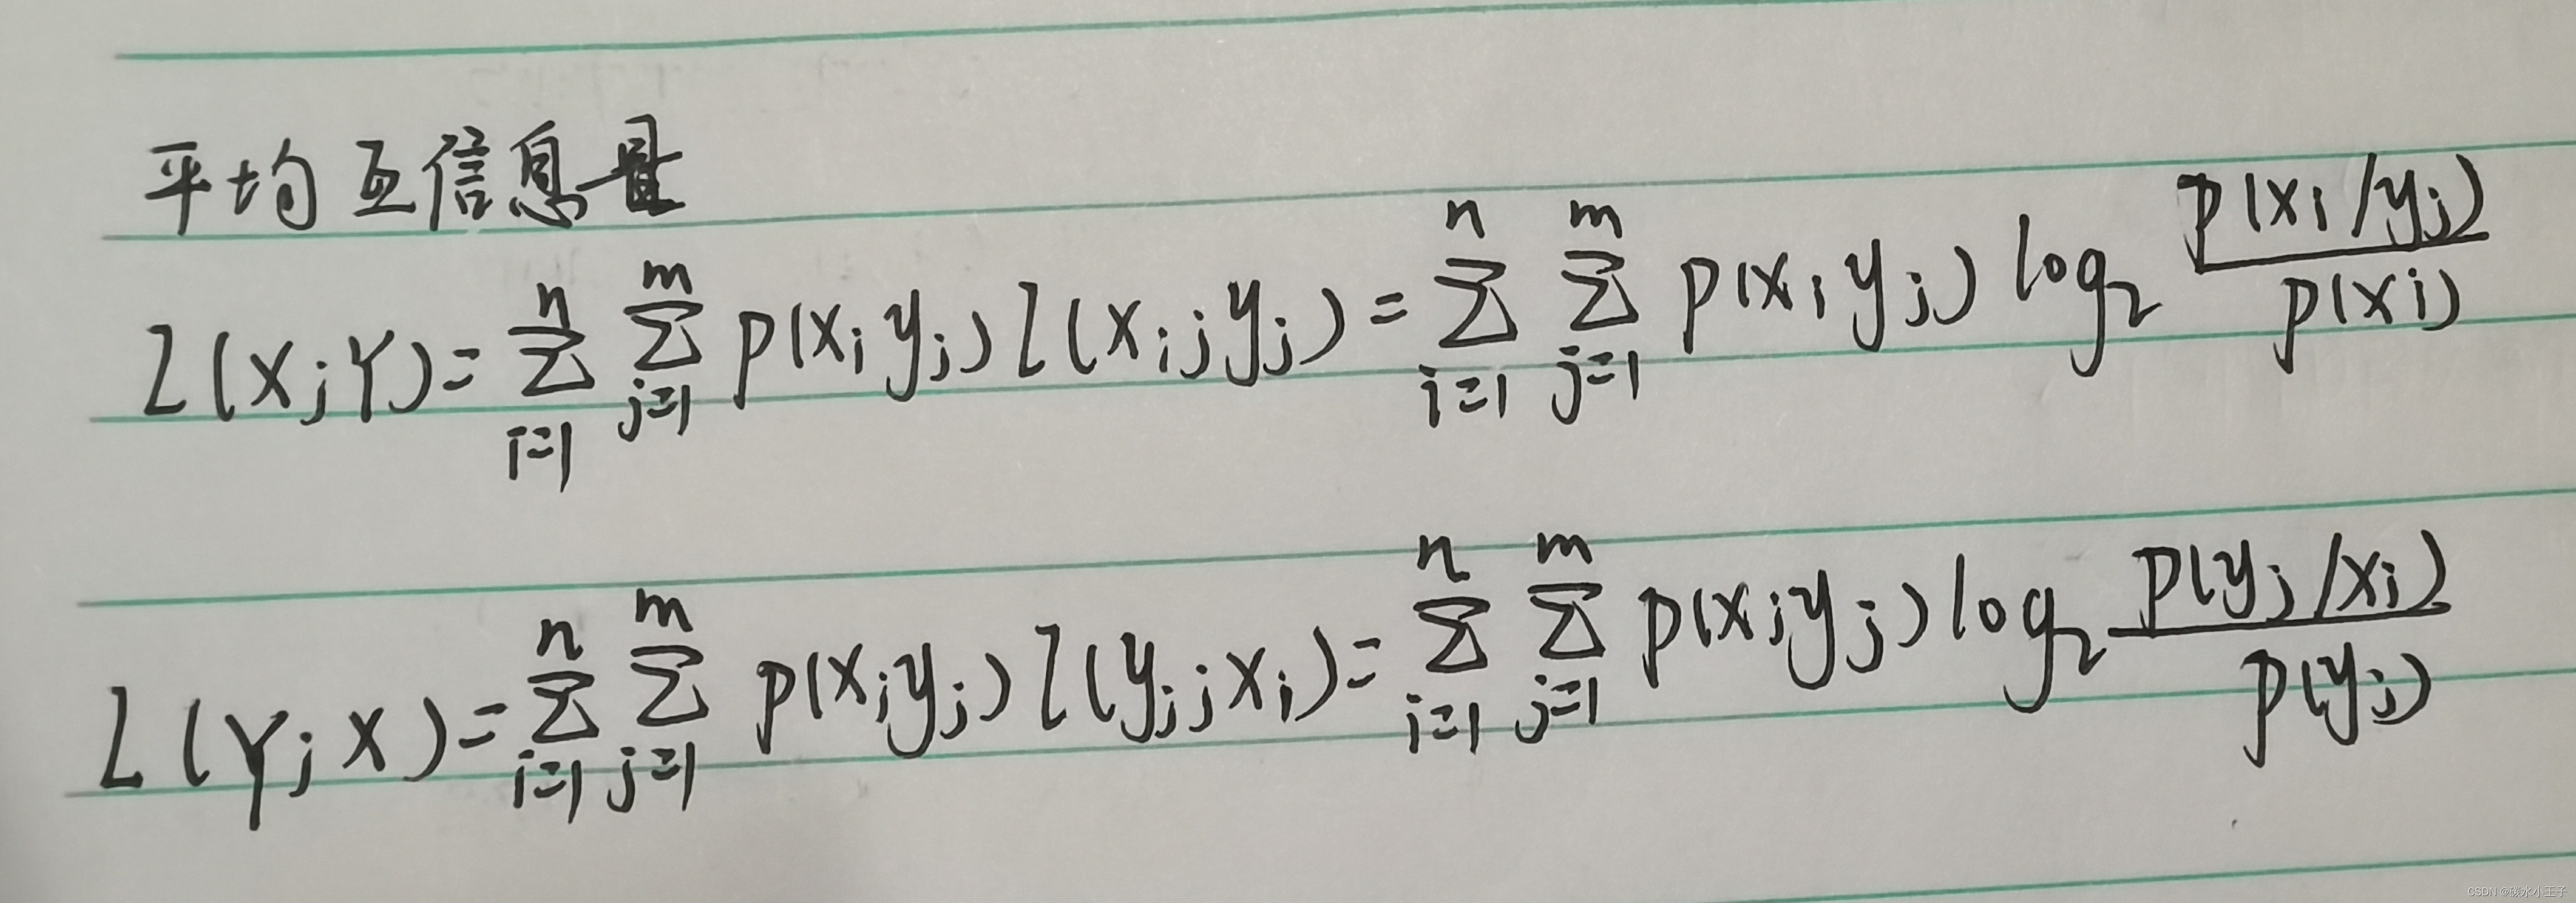 平均互信息量
I(X;Y)=∑_{i=1}^{n}∑_{j=1}^{m}p(x_i y_j)I(x_i;y_j)=∑_{i=1}^{n}∑_{j=1}^{m}p(x_i y_j)log_2 \frac{p(x_i/y_j)}{p(x_i)}
I(Y;X)=∑_{i=1}^{n}∑_{j=1}^{m}p(x_i y_j)I(y_j;x_i)=∑_{i=1}^{n}∑_{j=1}^{m}p(x_i y_j)log_2 \frac{p(y_j/x_i)}{p(y_j)}
CSDN @碳水小王子